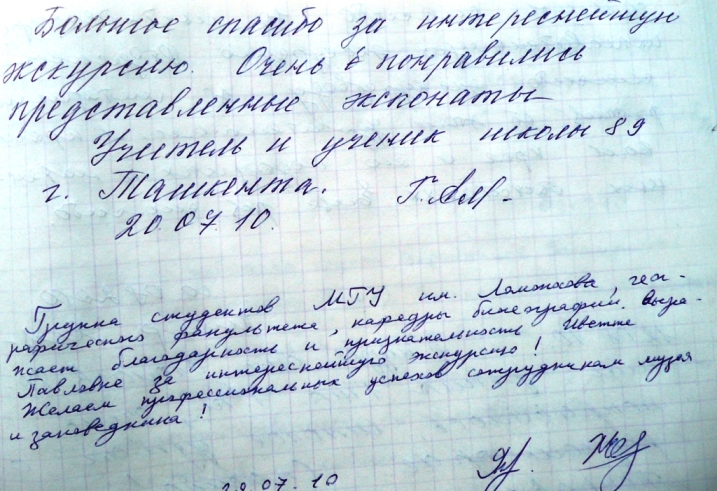 Большое спасибо за интереснейшую
экскурсию. Очень понравились
представленные экспонаты
Учитель и ученик школы 89
г. Ташкента.
20.07.10.
Группа студентов МГУ им. Ломоносова, геог-
рафического факультета, кафедры биогеографии выра-
жает благодарность и признательность Иветте
Павловне за интереснейшую экскурсию!
Желаем профессиональных успехов сотрудникам музея
и заповедника!
28.07.10